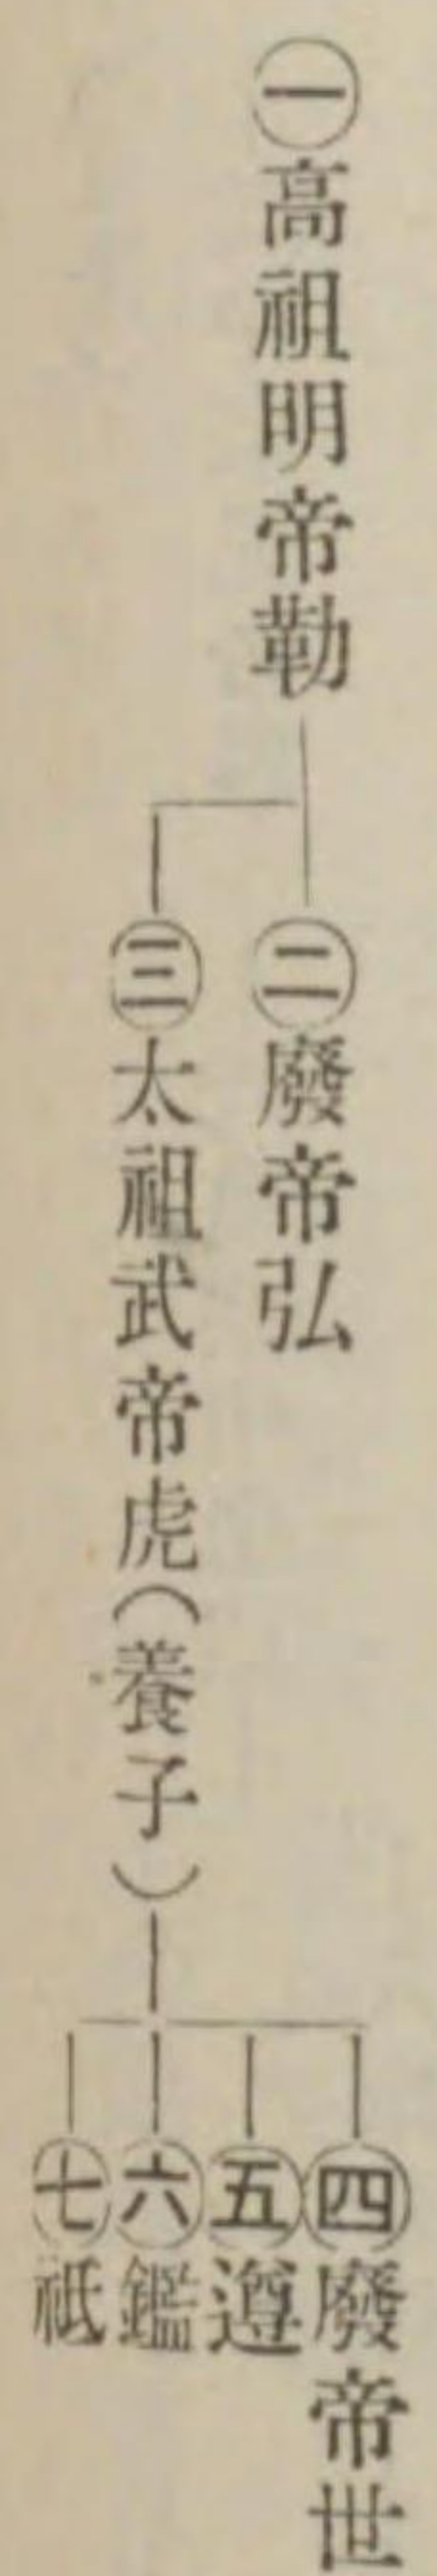 ㊀高祖明帝勒
㊁廢帝弘
㊂太祖武帝虎(養子)
㊃廢帝世
㊄遵
㊅鑑
㊆祗